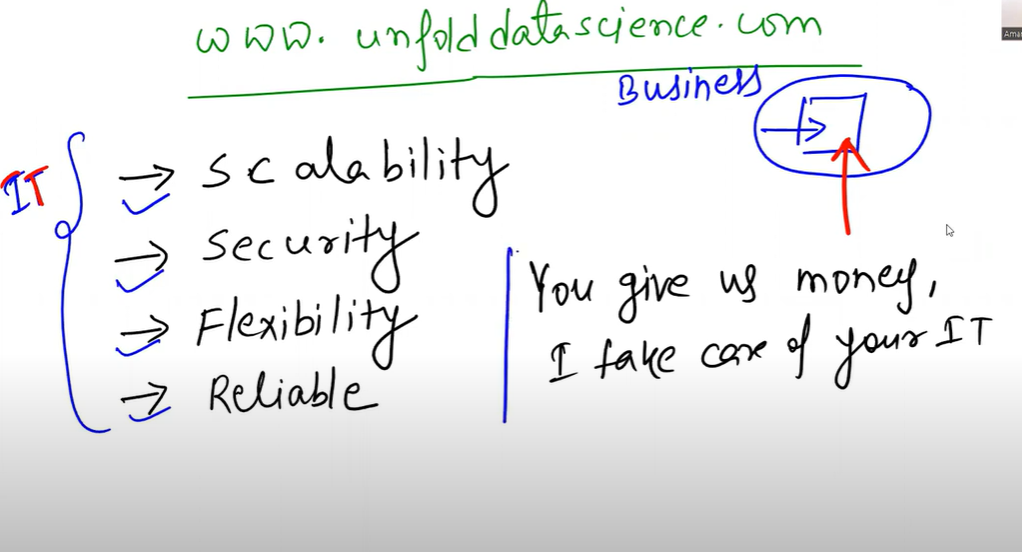 www.unfolddatascience.com
Business
IT
→ Scalability
→ Security
→ Flexibility
→ Reliable
You give us money,
I take care of your IT
Aman